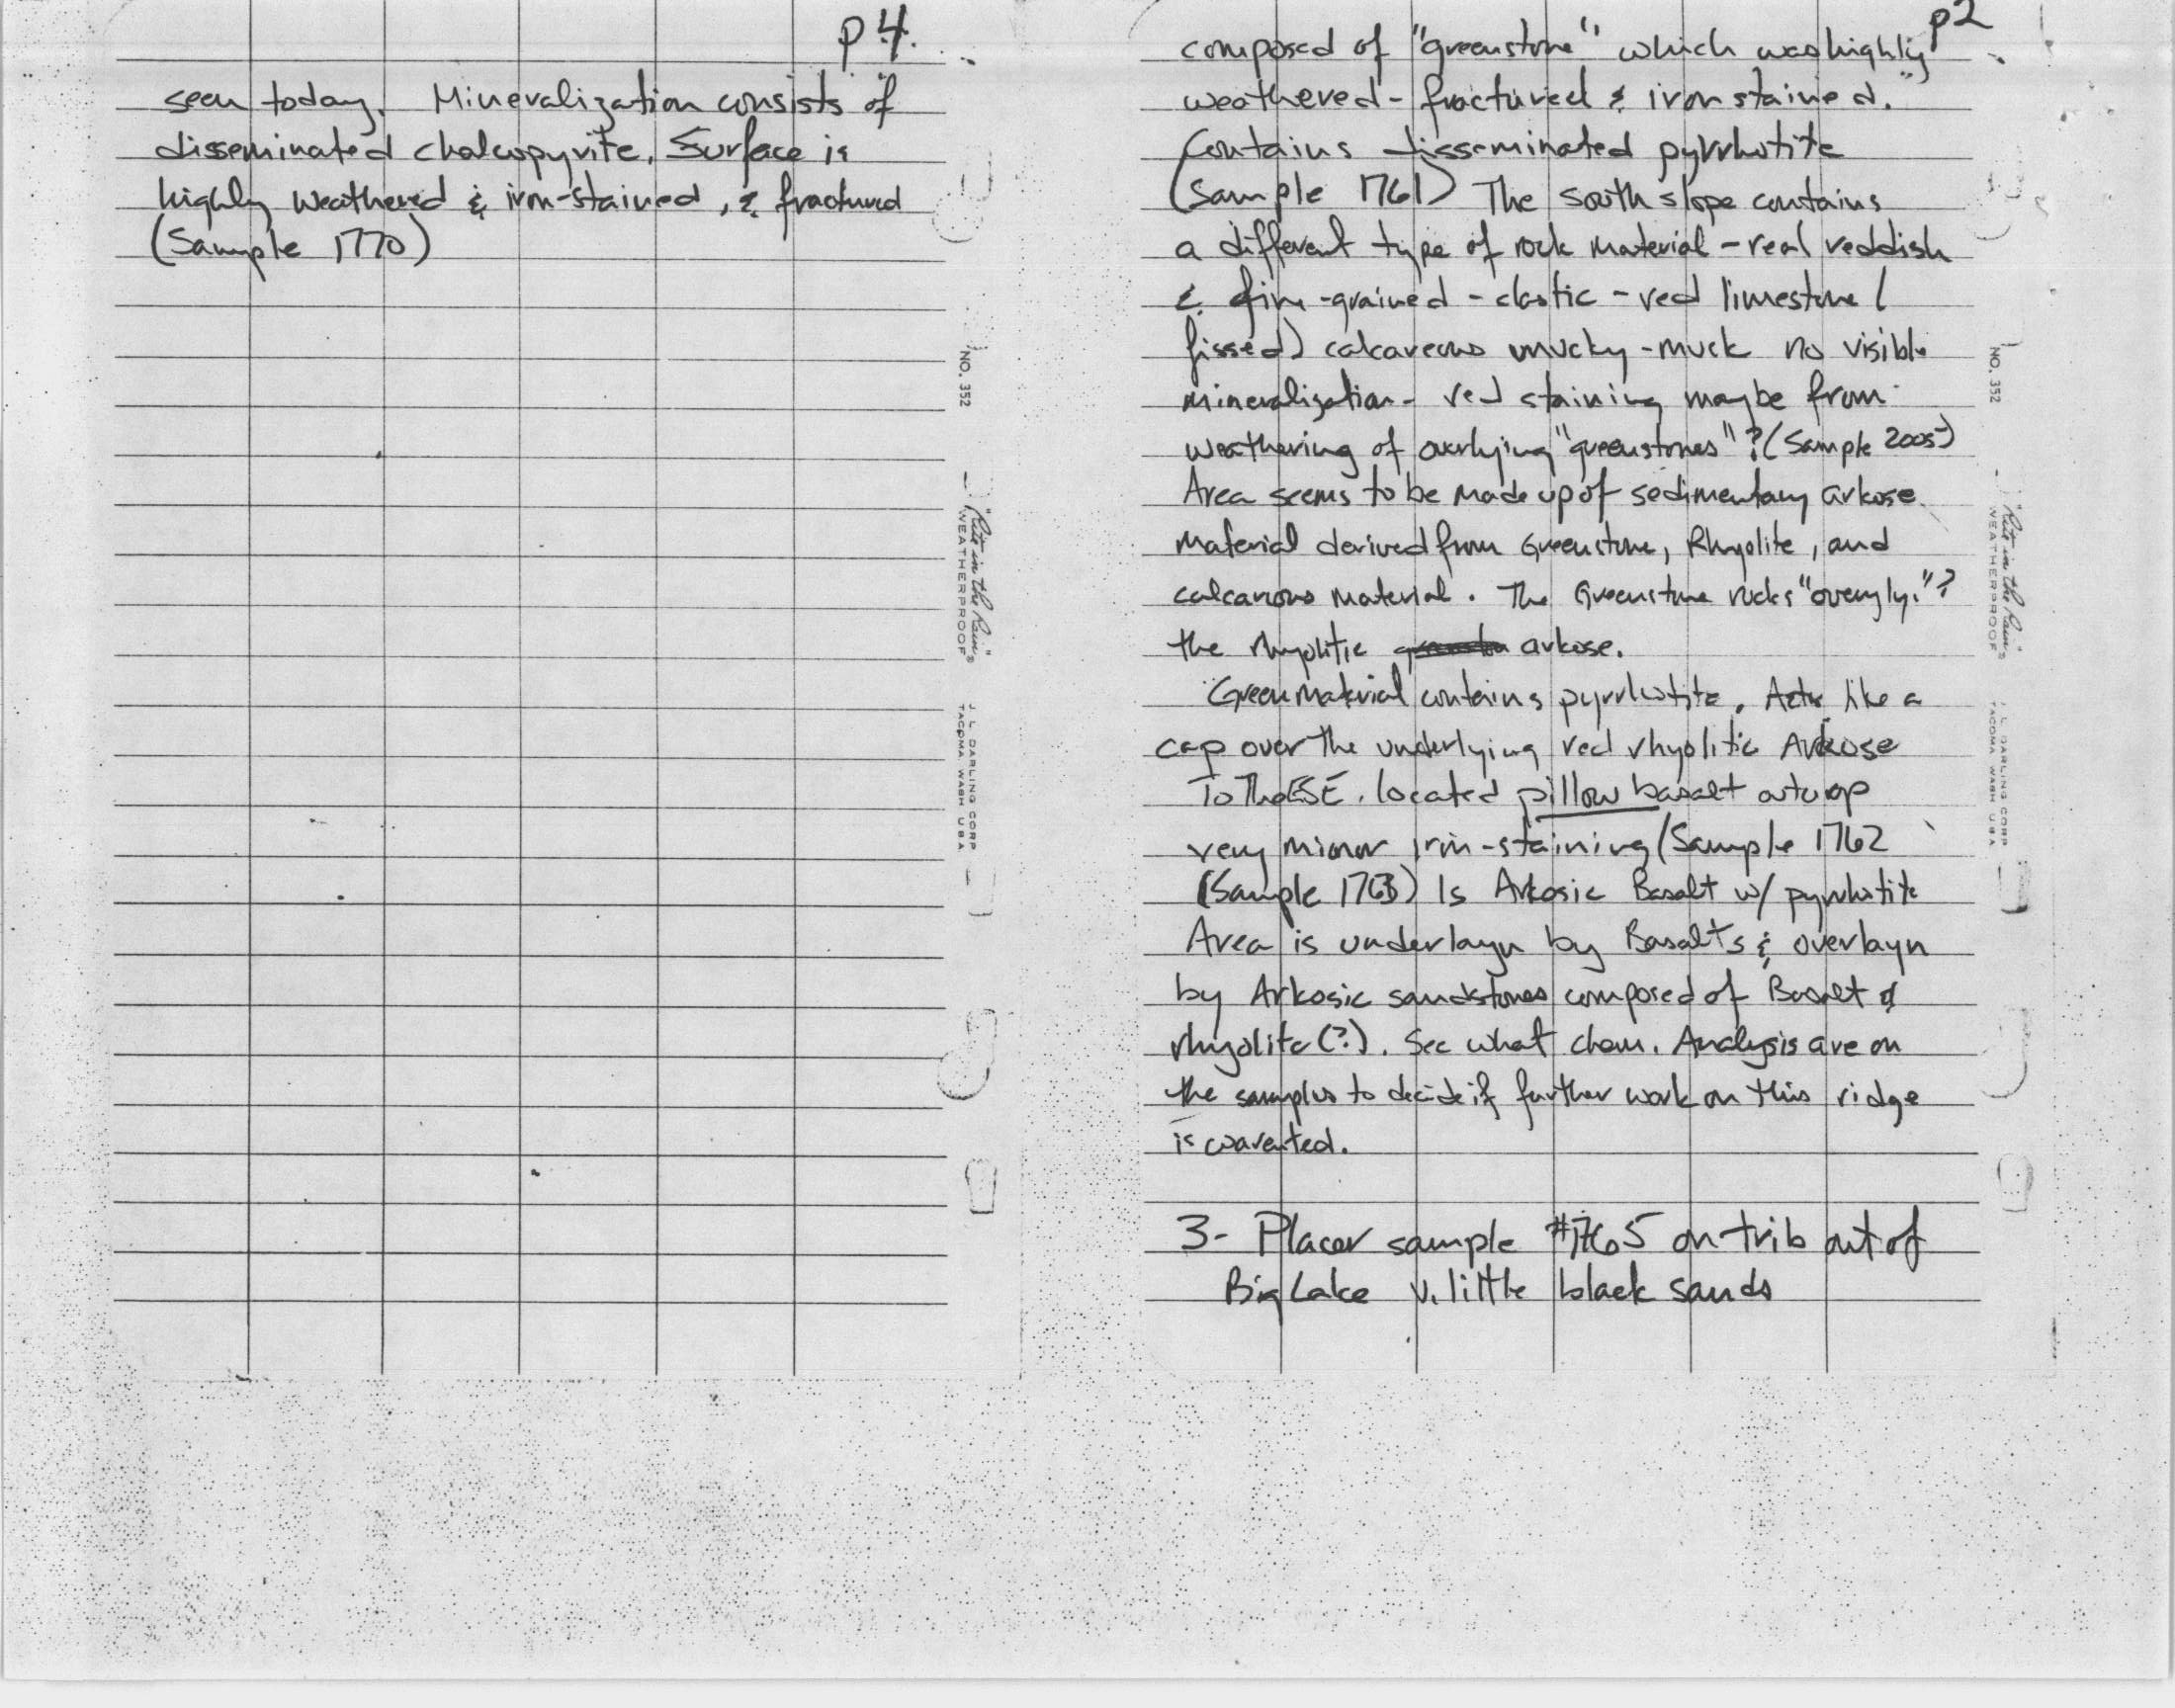 p 4.
seen today. Mineralization consists of
disseminated chalcopyrite. Surface is
highly weathered & iron-stained, & fractured
(Sample 1770)
NO. 352
"Rite in the Rain"
WEATHERPROOF
J. L. DARLING CORP
TACOMA WASH USA
p2
composed of "greenstone" which was highly
weathered - fractured & iron stained.
Contains disseminated pyrrhotite
(Sample 1761) The south slope contains
a different type of rock material - real reddish
& fine-grained - clastic - red limestone (
fissed) calcareous mucky-muck no visible
mineralization - red staining maybe from
weathering of overlying "greenstones"? (Sample 2005)
Area seems to be made up of sedimentary arkose
material derived from Greenstone, Rhyolite, and
calcarous material. The Greenstone rocks "overyly."?
the rhyolitic arkose.
Green material contains pyrrhotite. Acts like a
cap over the underlying red rhyolitic Arkose
To The ESE. located pillow basalt outcrop
very mionor iron-staining (Sample 1762
(Sample 1763) Is Arkosic Basalt w/ pyrrhotite
Area is underlayn by Basalts & overlayn
by Arkosic sandstones composed of Basalt &
rhyolite (?). See what chem. Analysis are on
the samples to decide if further work on this ridge
is warented.
3- Placer sample #1765 on trib out of
Big Lake v. little black sands
NO. 352
"Rite in the Rain"
WEATHERPROOF
J. L. DARLING CORP
TACOMA WASH USA